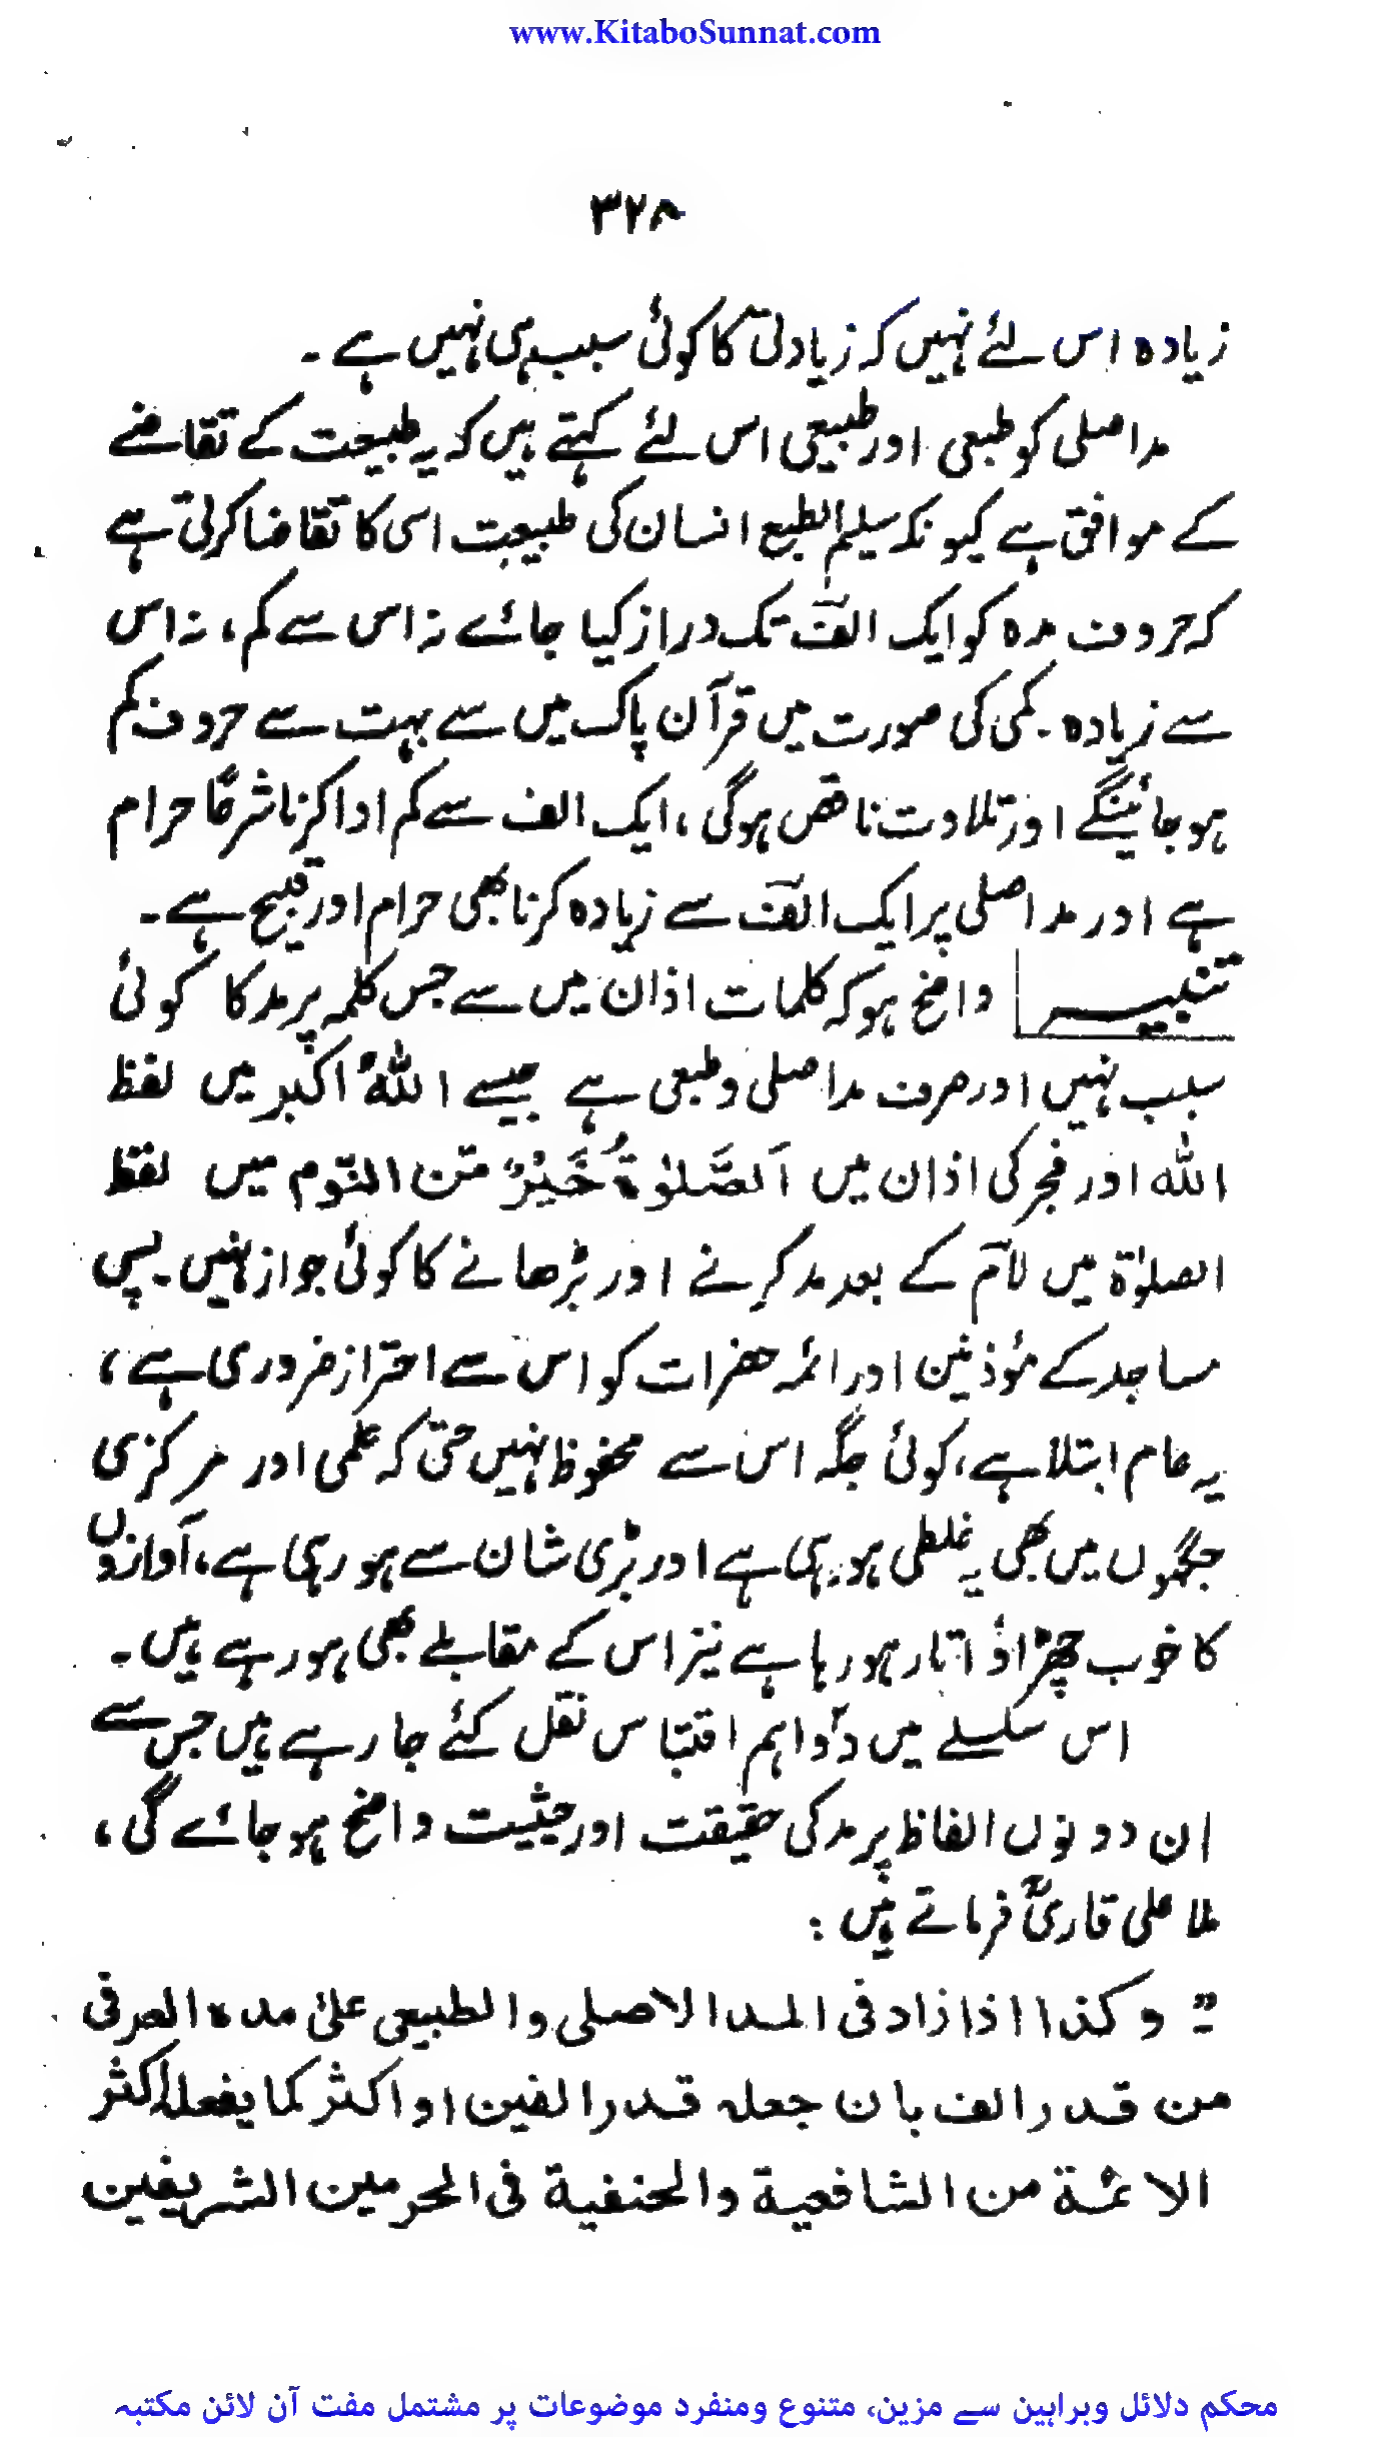 www.KitaboSunnat.com
۳۲۸
زیادہ اس لئے نہیں کہ زیادتی کا کوئی سبب ہی نہیں ہے ۔
مد اصلی کو طبعی اور طبیعی اس لئے کہتے ہیں کہ یہ طبیعت کے تقاضے
کے موافق ہے کیونکہ سلیم الطبع انسان کی طبیعت اسی کا تقاضا کرتی ہے
کہ حروف مدہ کو ایک الف تک دراز کیا جائے نہ اس سے کم، نہ اس
سے زیادہ ۔ کمی کی صورت میں قرآن پاک میں سے بہت سے حروف کم
ہو جائینگے اور تلاوت ناقص ہوگی ، ایک الف سے کم ادا کرنا شرعًا حرام
ہے اور مد اصلی پر ایک الف سے زیادہ کرنا بھی حرام اور قبیح ہے ۔
تنبیہ واضح ہو کہ کلمات اذان میں سے جس کلمہ پر مد کا کوئی
سبب نہیں اور صرف مد اصلی و طبعی ہے جیسے اللهُ اکبر میں لفظ
الله اور فجر کی اذان میں اَلصَّلوٰةُ خَيْرٌ مّن النّوم میں لفظ
الصلوٰة میں لام کے بعد مد کرنے اور بڑھانے کا کوئی جواز نہیں ۔ پس
مساجد کے مؤذنین اور ائمہ حضرات کو اس سے احتراز ضروری ہے ،
یہ عام ابتلا ہے، کوئی جگہ اس سے محفوظ نہیں حتیٰ کہ علمی اور مرکزی
جگہوں میں بھی یہ غلطی ہو رہی ہے اور بڑی شان سے ہو رہی ہے ، آوازوں
کا خوب چڑاؤ اتار ہو رہا ہے نیز اس کے مقابلے بھی ہو رہے ہیں ۔
اس سلسلے میں دو اہم اقتباس نقل کئے جا رہے ہیں جس سے
ان دونوں الفاظ پر مد کی حقیقت اور حیثیت واضح ہو جائے گی ،
ملا علی قاریؒ فرماتے ہیں :
” و كذا اذا زاد فى المد الاصلى والطبيعى على مده العرفى
من قدر الف بان جعله قدر الفين او اكثر كما يفعله اكثر
الائمة من الشافعية والحنفية فى الحرمين الشريفين
محکم دلائل وبراہین سے مزین، متنوع ومنفرد موضوعات پر مشتمل مفت آن لائن مکتبہ